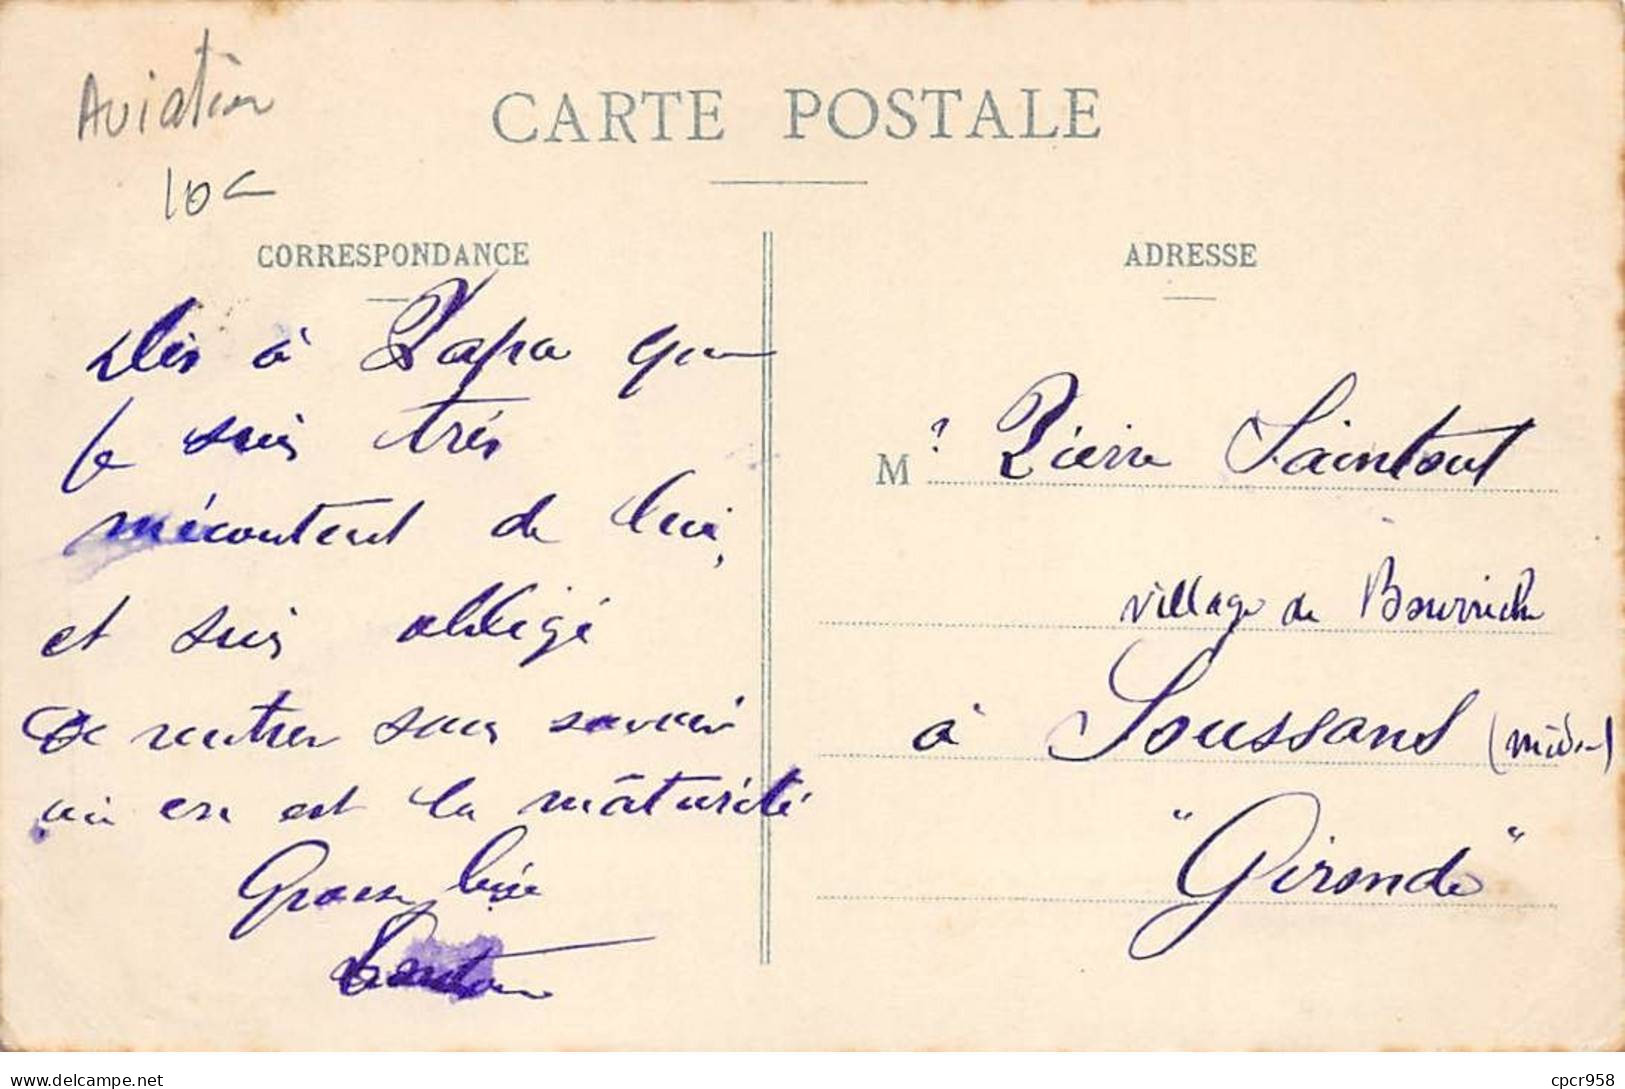 Aviation
10c
CARTE POSTALE
CORRESPONDANCE
Dis à Papa que
je suis très
mécontent de lui,
et suis obligé
de rentrer sans savoir
où en est la mâturité
Grosse bise
ADRESSE
Mr Pierre Saintout
village de Bourriche
à Soussans (médoc)
"Gironde"
delcampe.net
cpcr958